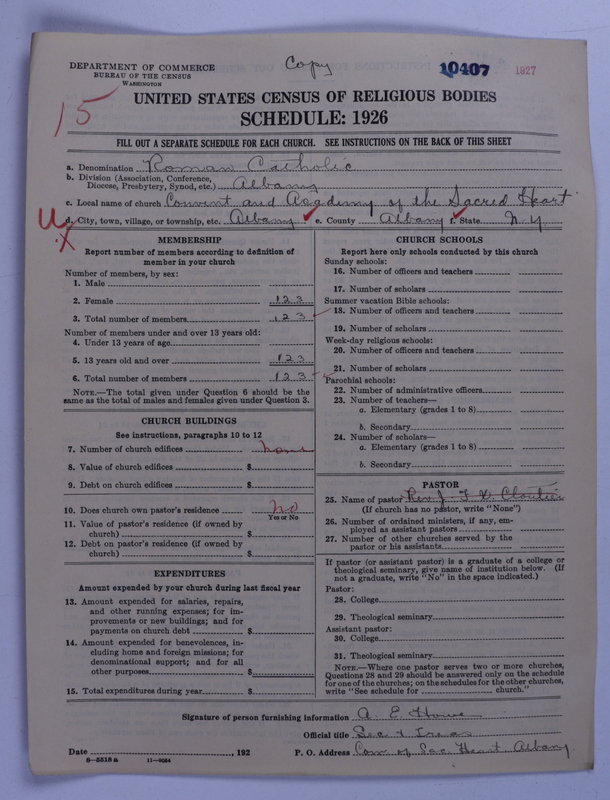 DEPARTMENT OF COMMERCE
BUREAU OF THE CENSUS
WASHINGTON
Copy
10407
1927
15
UNITED STATES CENSUS OF RELIGIOUS BODIES
SCHEDULE: 1926
FILL OUT A SEPARATE SCHEDULE FOR EACH CHURCH. SEE INSTRUCTIONS ON THE BACK OF THIS SHEET
a. Denomination Roman Catholic
b. Division (Association, Conference,
Diocese, Presbytery, Synod, etc.) Albany
c. Local name of church Convent and Academy of the Sacred Heart
d. City, town, village, or township, etc. Albany e. County Albany f. State N.Y
MEMBERSHIP
Report number of members according to definition of
member in your church
Number of members, by sex:
1. Male
2. Female 123
3. Total number of members 123
Number of members under and over 13 years old:
4. Under 13 years of age
5. 13 years old and over 123
6. Total number of members 123
NOTE.—The total given under Question 6 should be
the same as the total of males and females given under Question 3.
CHURCH BUILDINGS
See instructions, paragraphs 10 to 12
7. Number of church edifices none
8. Value of church edifices $
9. Debt on church edifices $
10. Does church own pastor's residence No
Yes or No
11. Value of pastor's residence (if owned by
church) $
12. Debt on pastor's residence (if owned by
church) $
EXPENDITURES
Amount expended by your church during last fiscal year
13. Amount expended for salaries, repairs,
and other running expenses; for im-
provements or new buildings; and for
payments on church debt $
14. Amount expended for benevolences, in-
cluding home and foreign missions; for
denominational support; and for all
other purposes $
15. Total expenditures during year $
CHURCH SCHOOLS
Report here only schools conducted by this church
Sunday schools:
16. Number of officers and teachers
17. Number of scholars
Summer vacation Bible schools:
18. Number of officers and teachers
19. Number of scholars
Week-day religious schools:
20. Number of officers and teachers
21. Number of scholars
Parochial schools:
22. Number of administrative officers
23. Number of teachers—
a. Elementary (grades 1 to 8)
b. Secondary
24. Number of scholars—
a. Elementary (grades 1 to 8)
b. Secondary
PASTOR
25. Name of pastor Rev. J. F. X. Cloutier
(If church has no pastor, write "None")
26. Number of ordained ministers, if any, em-
ployed as assistant pastors
27. Number of other churches served by the
pastor or his assistants
If pastor (or assistant pastor) is a graduate of a college or
theological seminary, give name of institution below. (If
not a graduate, write "No" in the space indicated.)
Pastor:
28. College
29. Theological seminary
Assistant pastor:
30. College
31. Theological seminary
NOTE.—Where one pastor serves two or more churches,
Questions 28 and 29 should be answered only on the schedule
for one of the churches; on the schedules for the other churches,
write "See schedule for church."
Signature of person furnishing information A. E. Howe
Official title Sec & Treas
Date , 192
P. O. Address Con. of Sac. Heart, Albany
8—5518 a 11—9054